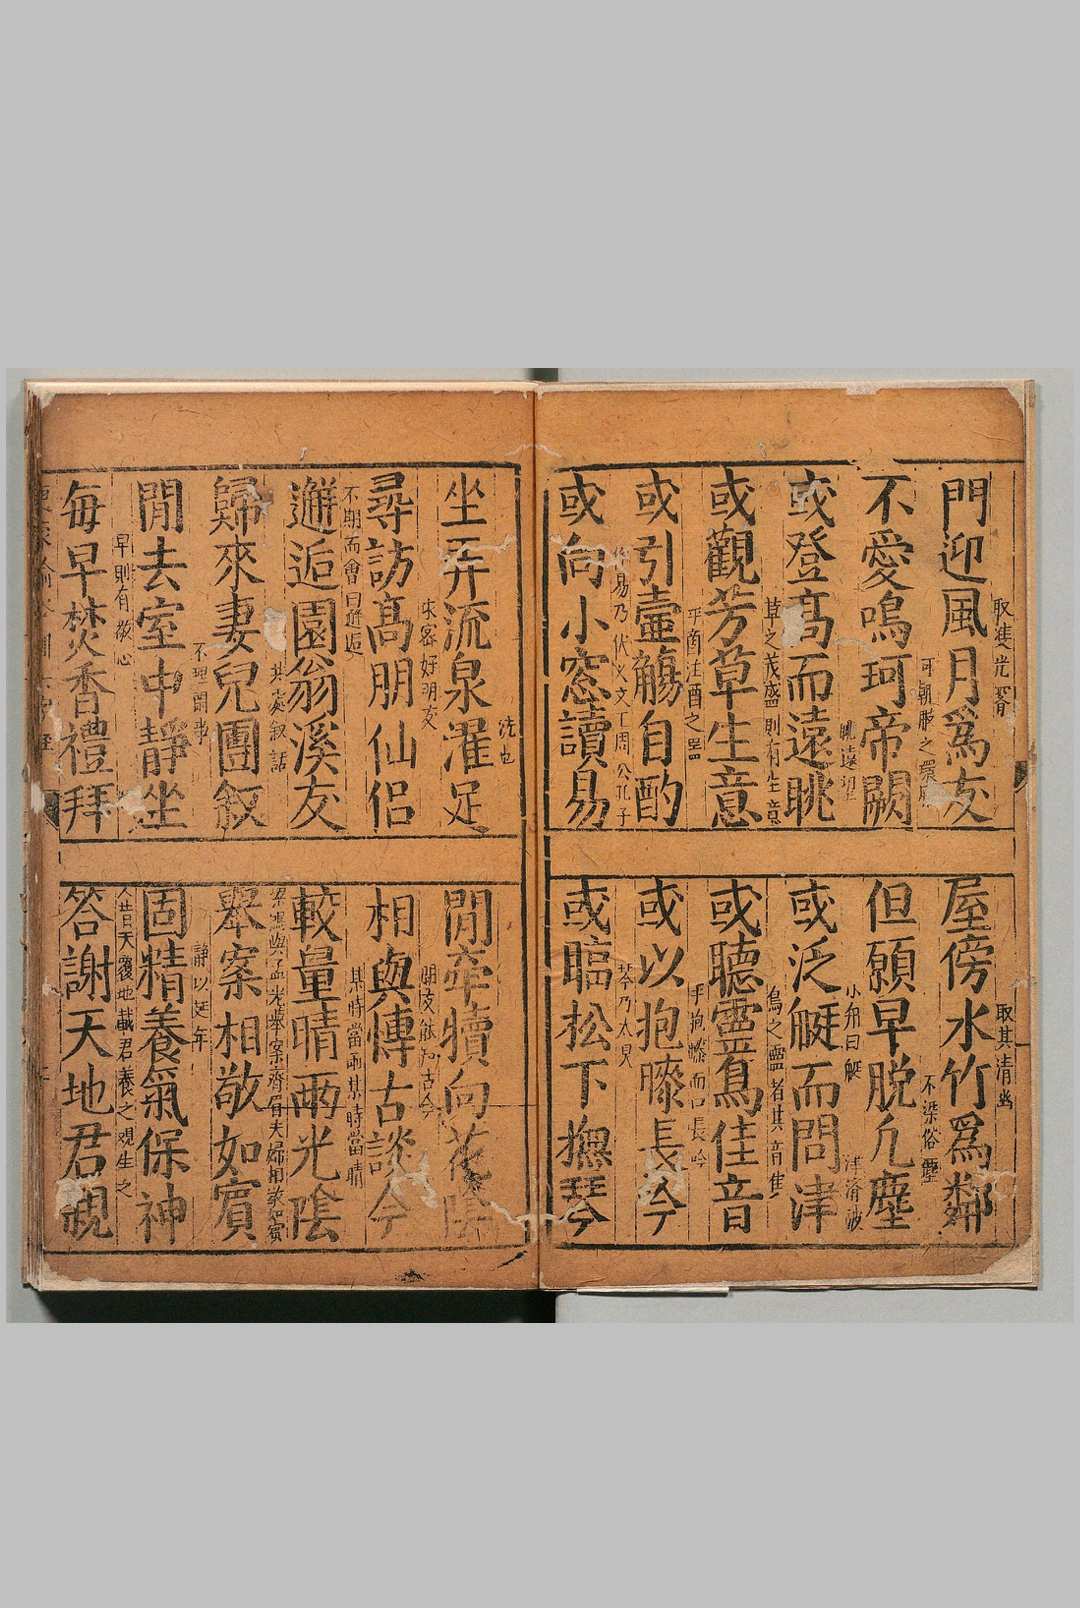 取其光霽
門迎風月爲友
取其清幽
屋傍水竹爲鄰
不愛鳴珂帝闕
不染俗塵
但願早脫凡塵
眺遠望
或登高而遠眺
小舟曰艇
或泛艇而問津
草之茂盛則有生意
或觀芳草生意
鳥之靈者其音佳
或聽靈鳥佳音
或引壼觴自酌
手抱膝而口長吟
或以抱膝長吟
易乃伏义文王周公孔子
或向小窓讀易
或臨松下撫琴
洗也
坐弄流泉濯足
閒牽犢向花陰
尋訪高朋仙侶
朋友能知古今
相與慱古談今
不期而會曰邂逅
邂逅園翁溪友
某時當雨某時當晴
較量晴雨光陰
其處叙話
歸來妻兒團叙
梁鴻與孟光舉案齊眉夫婦相敬如賓
舉案相敬如賓
不理閒事
閒去室中靜坐
靜以延年
固精養氣保神
早則有敬心
每早焚香禮拜
天覆地載君養之親生之
答謝天地君親